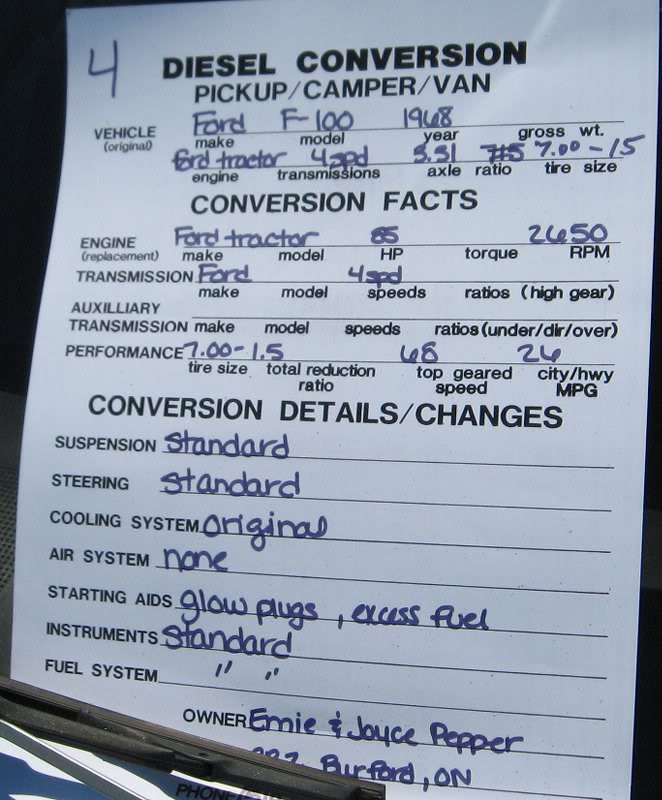 4
DIESEL CONVERSION
PICKUP/CAMPER/VAN
Ford F-100 1968
VEHICLE make model year gross wt.
(original)
ford tractor 4spd 3.31 7.00-15
engine transmissions axle ratio tire size
CONVERSION FACTS
ENGINE Ford tractor 85 2650
(replacement) make model HP torque RPM
TRANSMISSION Ford 4spd
make model speeds ratios (high gear)
AUXILLIARY
TRANSMISSION make model speeds ratios (under/dir/over)
PERFORMANCE 7.00-1.5 68 26
tire size total reduction top geared city/hwy
ratio speed MPG
CONVERSION DETAILS/CHANGES
SUSPENSION Standard
STEERING Standard
COOLING SYSTEM original
AIR SYSTEM none
STARTING AIDS glow plugs, excess fuel
INSTRUMENTS Standard
FUEL SYSTEM " "
OWNER Ernie & Joyce Pepper
Burford, ON
PHONE